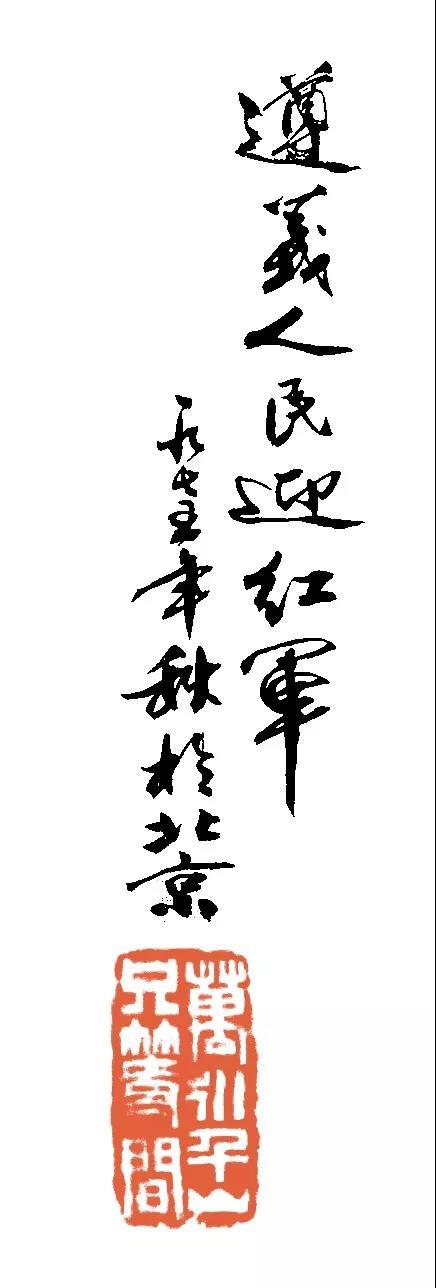 遵義人民迎红軍
一九七五年秋於北京
萬水千山
只等間